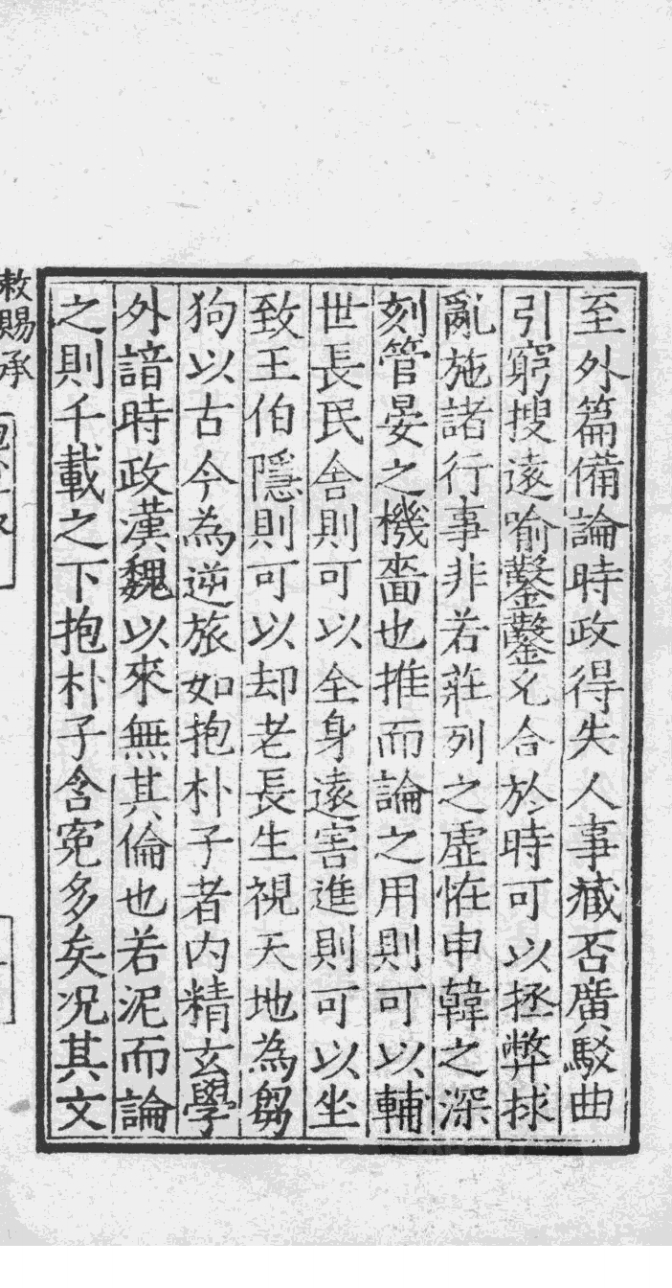 至外篇備論時政得失人事臧否廣駁曲
引窮搜遠喻鑿鑿允合於時可以拯弊捄
亂施諸行事非若莊列之虛恠申韓之深
刻管晏之機嗇也推而論之用則可以輔
世長民舍則可以全身遠害進則可以坐
致王伯隱則可以却老長生視天地為芻
狗以古今為逆旅如抱朴子者内精玄學
外諳時政漢魏以來無其倫也若泥而論
之則千載之下抱朴子含寃多矣况其文
敕賜承